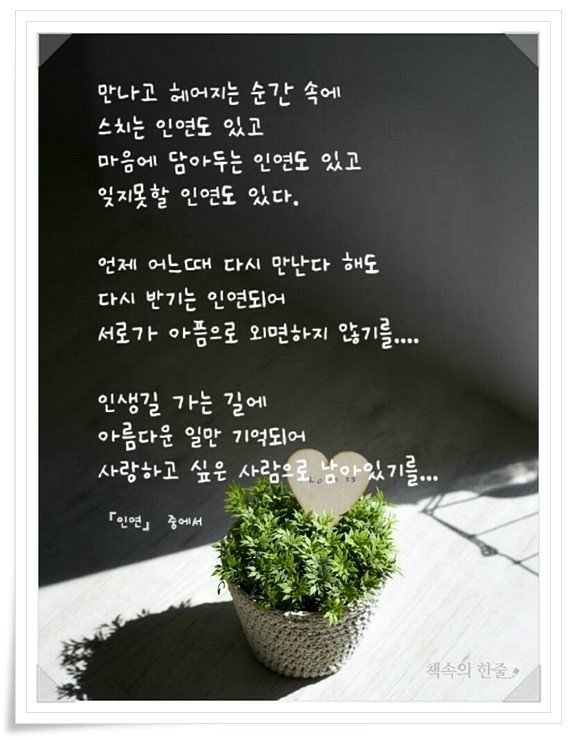 만나고 헤어지는 순간 속에
스치는 인연도 있고
마음에 담아두는 인연도 있고
잊지못할 인연도 있다.
언제 어느때 다시 만난다 해도
다시 반기는 인연되어
서로가 아픔으로 외면하지 않기를....
인생길 가는 길에
아름다운 일만 기억되어
사랑하고 싶은 사람으로 남아있기를...
『인연』 중에서
책속의 한줄